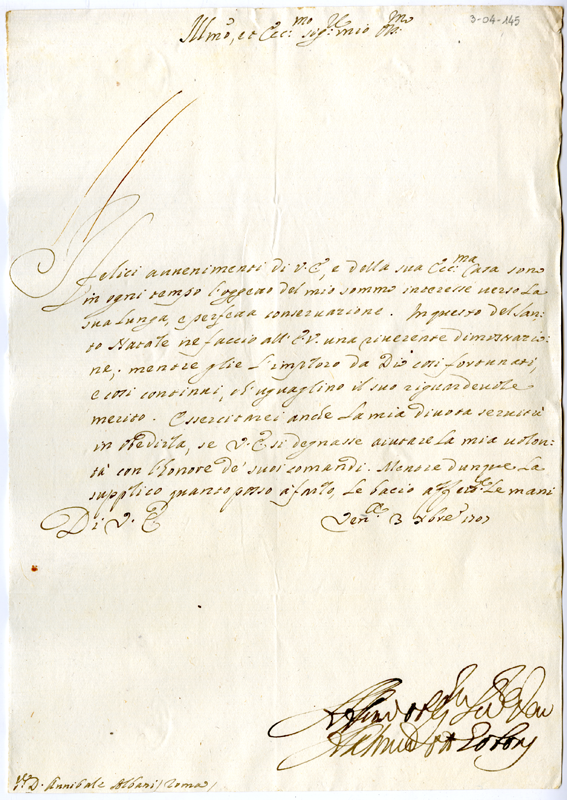 3-04-145
Illmo, et Ecc:mo Sig:r mio Oss:mo
I felici auuenimenti di V.E, e della sua Ecc:ma Casa sono
in ogni tempo l'oggetto del mio sommo interesse uerso la
sua lunga, e perfetta conseruazione. In questo del San-
to Natale ne faccio all'E.V. una riuerente dimostrazio-
ne, mentre glie l'imploro da Dio così fortunati,
e così continui, ch'uguaglino il suo riguardeuole
merito. Essercitarei anche la mia diuota seruitù
in obedirla, se V.E. si degnasse aiutare la mia uolon-
tà con l'honore de' suoi comandi. Mentre dunque La
supplico quanto posso a farlo, le bacio affett:te le mani
Di V. E
Ven:a 3 Xbre 1707
S:r D. Annibale Albani / Roma /